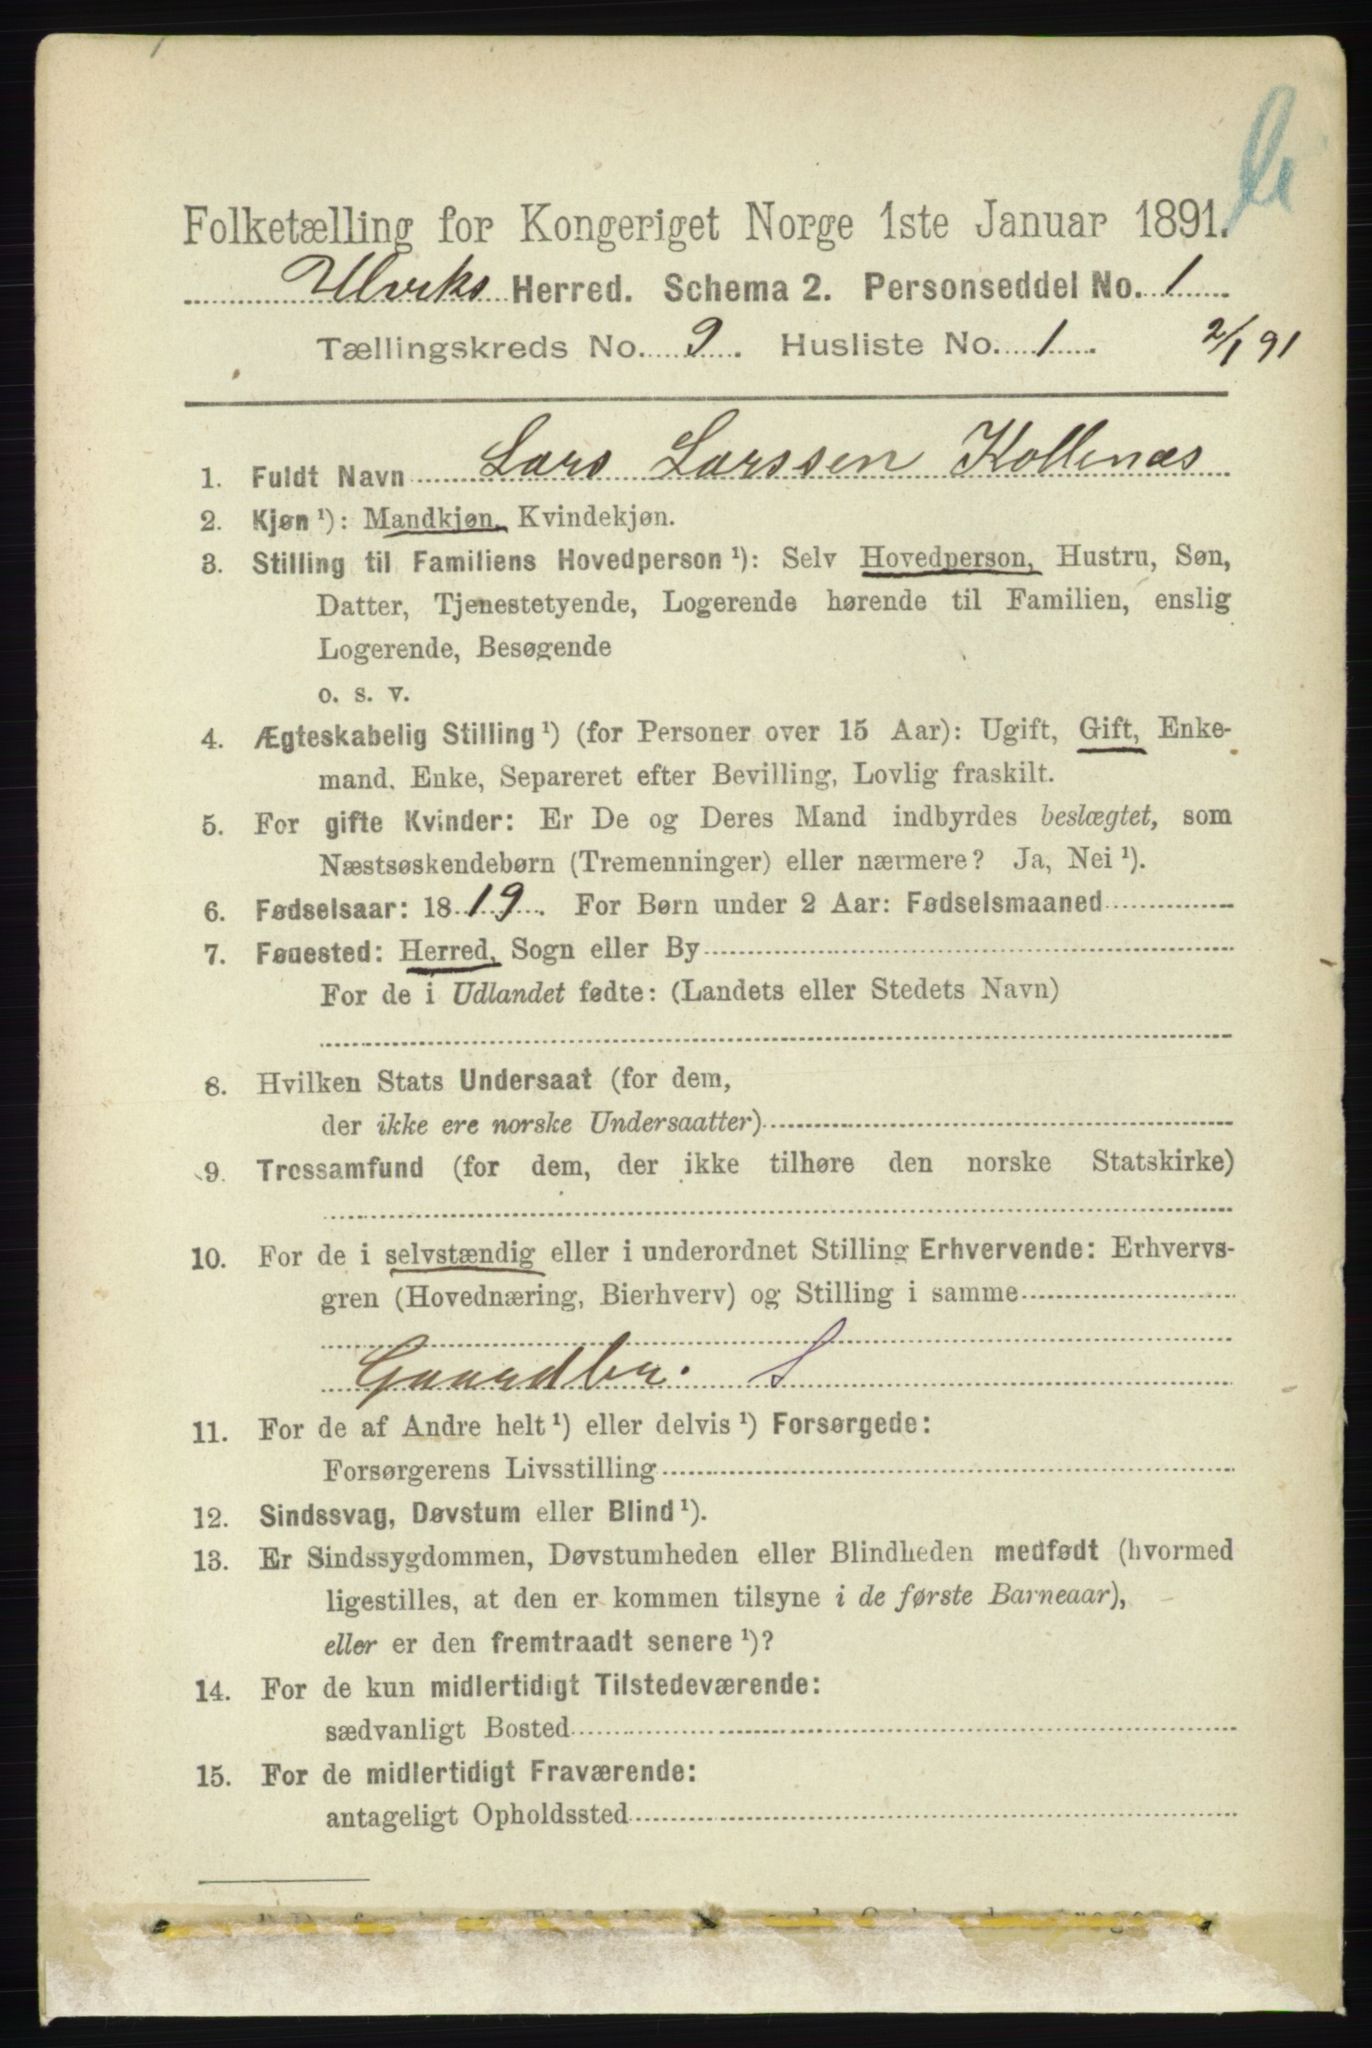 Folketælling for Kongeriget Norge 1ste Januar 1891.
Ulviks Herred. Schema 2. Personseddel No. 1
Tællingskreds No. 9. Husliste No. 1. 2/1 91
1. Fuldt Navn Lars Larssen Kollenæs
2. Kjøn ¹): Mandkjøn, Kvindekjøn.
3. Stilling til Familiens Hovedperson ¹): Selv Hovedperson, Hustru, Søn,
Datter, Tjenestetyende, Logerende hørende til Familien, enslig
Logerende, Besøgende
o. s. v.
4. Ægteskabelig Stilling ¹) (for Personer over 15 Aar): Ugift, Gift, Enke-
mand, Enke, Separeret efter Bevilling, Lovlig fraskilt.
5. For gifte Kvinder: Er De og Deres Mand indbyrdes beslægtet, som
Næstsøskendebørn (Tremenninger) eller nærmere? Ja, Nei ¹).
6. Fødselsaar: 1819. For Børn under 2 Aar: Fødselsmaaned
7. Føuested: Herred, Sogn eller By
For de i Udlandet fødte: (Landets eller Stedets Navn)
8. Hvilken Stats Undersaat (for dem,
der ikke ere norske Undersaatter)
9. Trossamfund (for dem, der ikke tilhøre den norske Statskirke)
10. For de i selvstændig eller i underordnet Stilling Erhvervende: Erhvervs-
gren (Hovednæring, Bierhverv) og Stilling i samme
Gaardbr. S
11. For de af Andre helt ¹) eller delvis ¹) Forsørgede:
Forsørgerens Livsstilling
12. Sindssvag, Døvstum eller Blind ¹).
13. Er Sindssygdommen, Døvstumheden eller Blindheden medfødt (hvormed
ligestilles, at den er kommen tilsyne i de første Barneaar),
eller er den fremtraadt senere ¹)?
14. For de kun midlertidigt Tilstedeværende:
sædvanligt Bosted
15. For de midlertidigt Fraværende:
antageligt Opholdssted